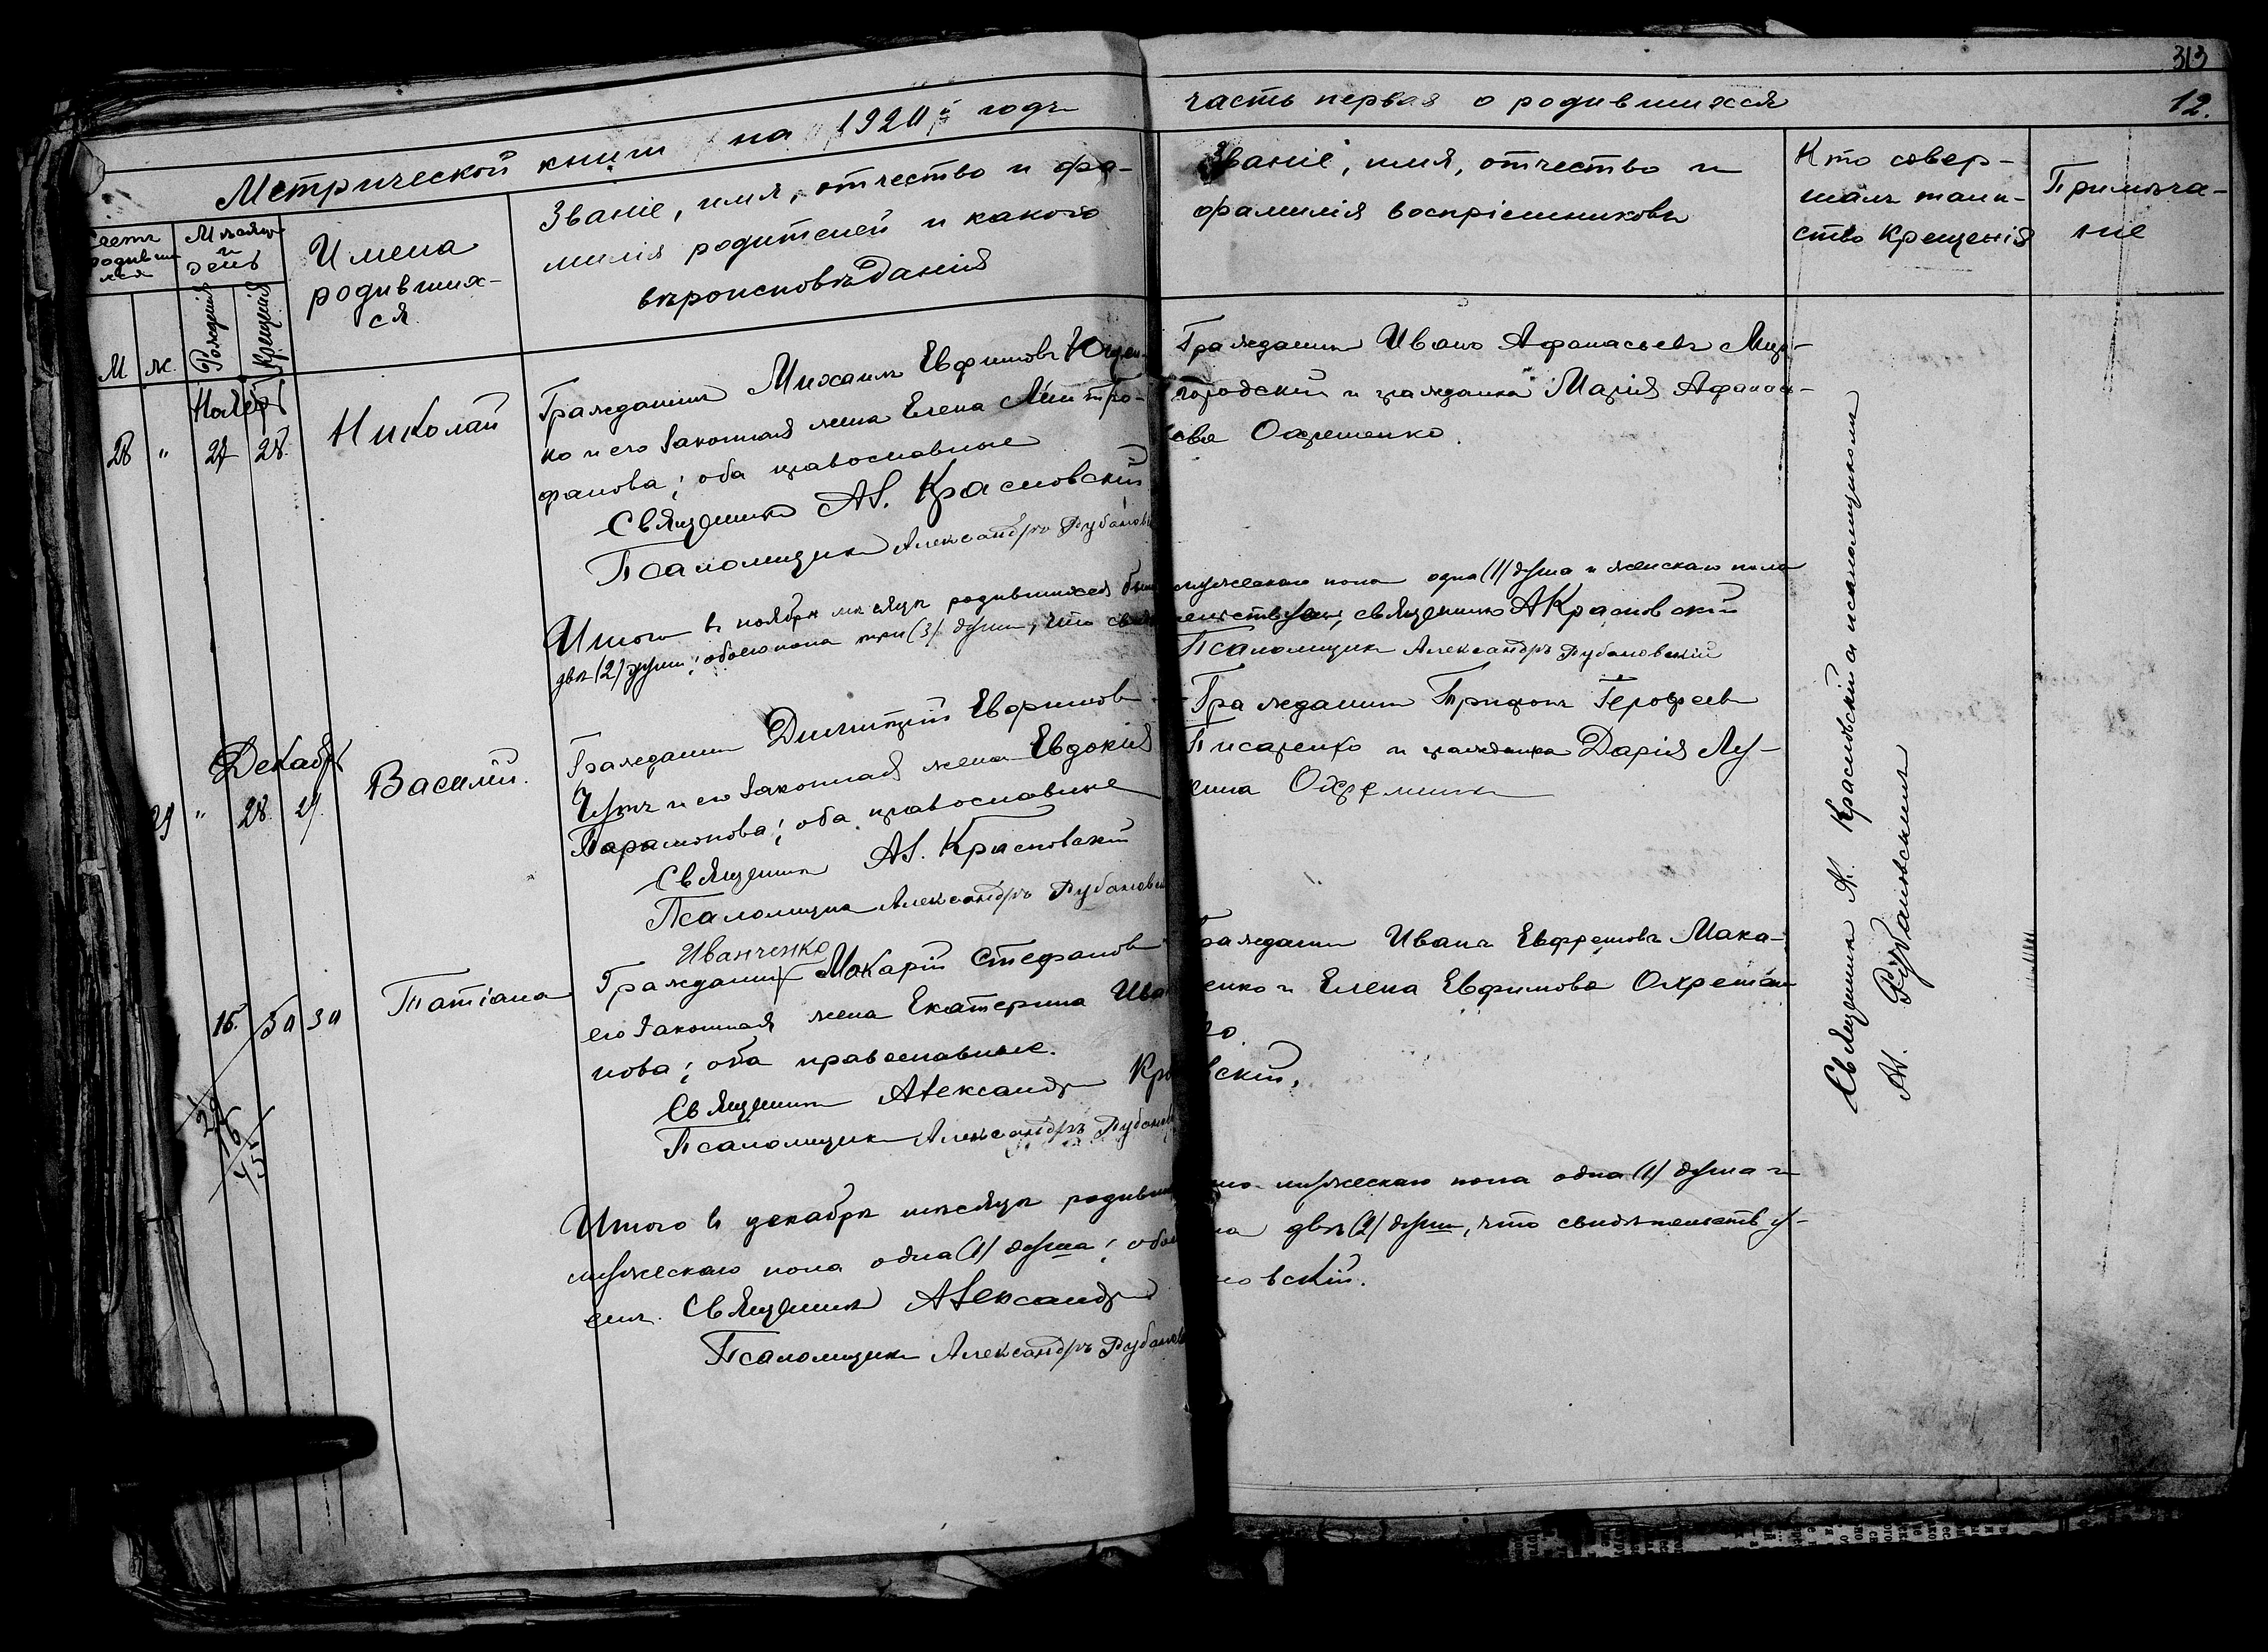 313
Метрической книги на 1920й годъ
часть первая о родившихся
12.
Счетъ родивши мся
Мѣсяцъ и день
М
ж.
Рожденія
Крещенія
Имена
родивших-
ся.
Званіе, имя, отчество и фа-
милія родителей и какого
вѣроисповѣданія
Званіе, имя, отчество и
фамилія воспріемниковъ
Кто совер-
шалъ таин-
ство Крещенія
Примѣча-
ніе
Ноябрь
28 " 27 28. Николай
Гражданинъ Михаилъ Евфимовъ Ющен-
ко и его законная жена Елена Митро-
фанова; оба православные
Священникъ Ал. Красновскій
Псаломщикъ Александръ Рубановскій
Гражданинъ Иванъ Афанасьевъ Мир-
городскій и гражданка Марія Афанась-
ева Охрешенко.
Итого въ ноябрѣ мѣсяцѣ родившихся было мужескаго пола одна (1) душа и женскаго пола
двѣ (2) души; обоего пола три (3) души, что свидѣтельствуемъ, священникъ А Красновскій
Псаломщикъ Александръ Рубановскій
Декабрь
29 " 28. 29. Василій.
Гражданинъ Димитрій Евфимовъ
и его законная жена Евдокія
Парамонова; оба православные
Священникъ Ал. Красновскій
Псаломщикъ Александръ Рубановскій
Гражданинъ Трифонъ Герофеевъ
Писаренко и гражданка Дарія Лу-
кина
Иванченко
15. 30 30 Татіана
Гражданинъ Макарій Стефановъ
его законная жена Екатерина Ива
нова; оба православные.
Священникъ Александръ Кра вскій,
Псаломщикъ Александръ Рубановскій
Гражданинъ Иванъ Евфремовъ Мака-
ренко и Елена Евфимова Охремен
ко
29
16
45
Итого въ декабрѣ мѣсяцѣ родивши но мужескаго пола одна (1) душа и
мужескаго пола одна (1) душа; обое ла двѣ (2) души, что свидѣтельству-
емъ. Священникъ Александръ новскій.
Псаломщикъ Александръ Рубановскій
Священникъ Ал. Красновскій съ псаломщикомъ
Ал. Рубановскимъ